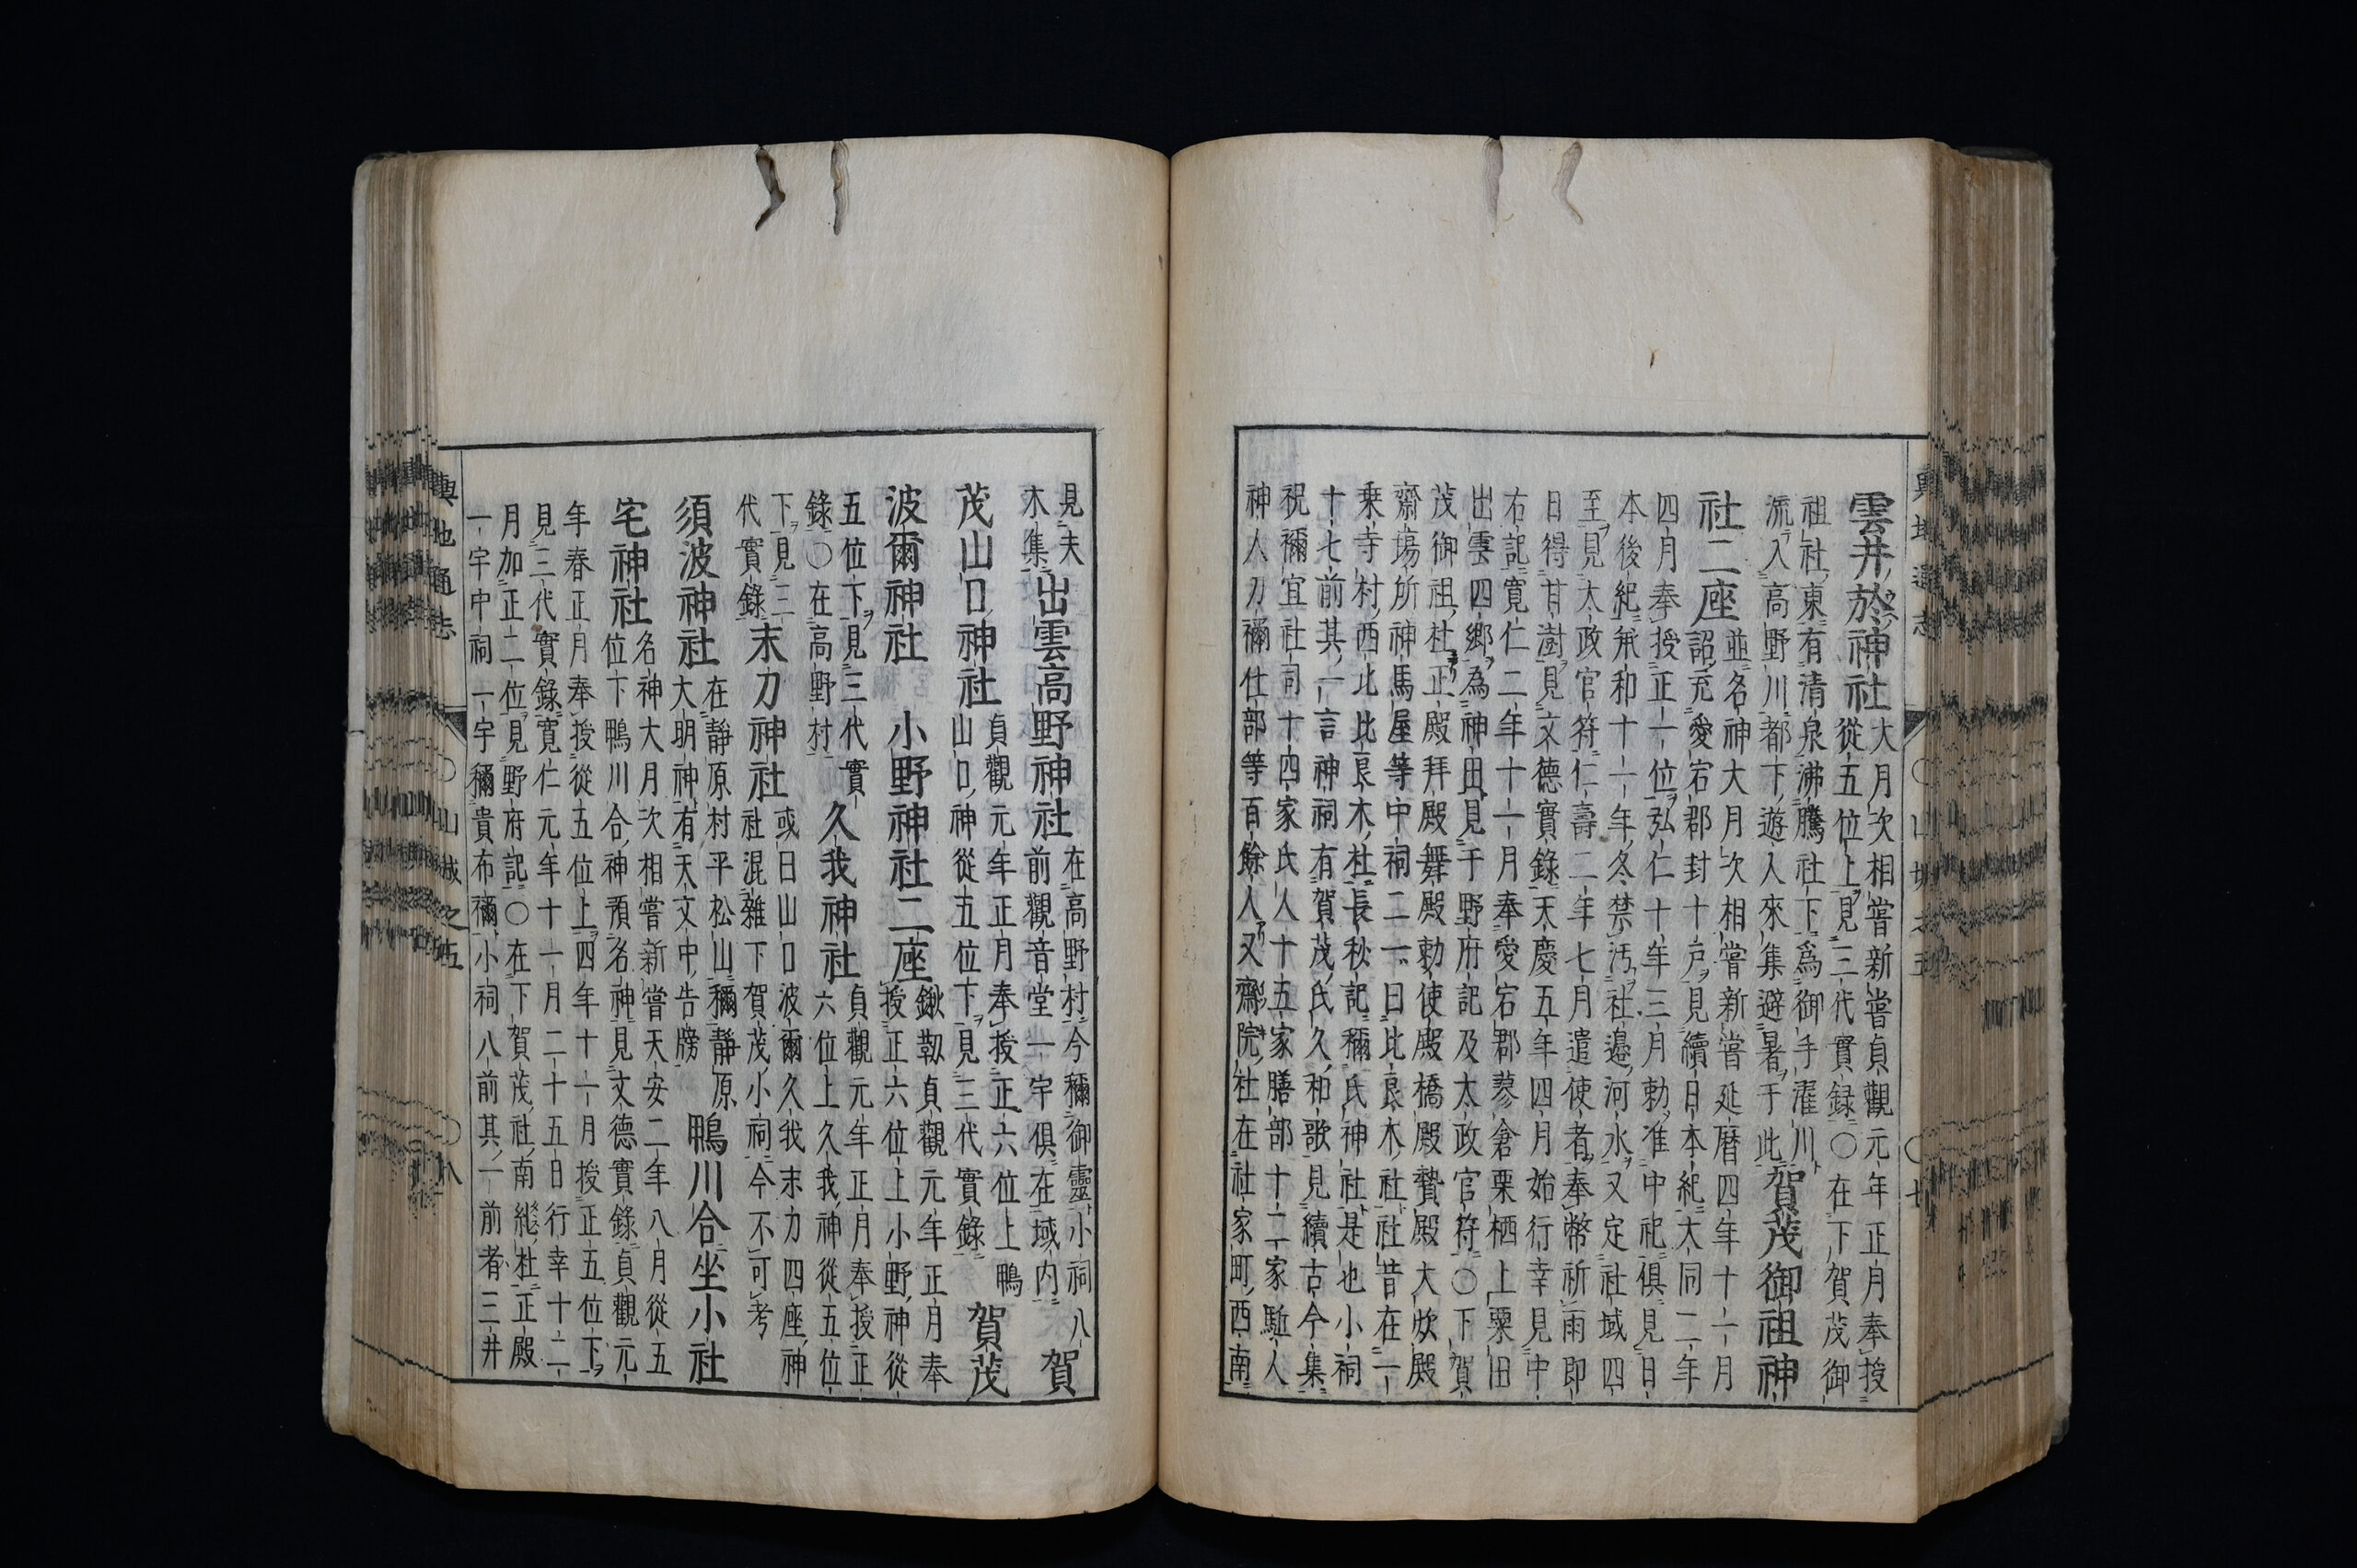 雲井於神社大月次相嘗新嘗貞觀元年正月奉授
從五位上見三代實録○在下賀茂御
祖社東有清泉沸騰社下爲御手濯川
流入高野川都下遊人來集避暑于此賀茂御祖神
社二座並名神大月次相嘗新嘗延暦四年十一月
詔充愛宕郡封十戸見續日本紀大同二年
四月奉授正一位弘仁十年三月勅准中祀俱見日
本後紀承和十一年冬禁汚社邉河水又定社域四
至見太政官符仁壽二年七月遣使者奉幣祈雨即
日得甘澍見文德實錄天慶五年四月始行幸見中
右記寛仁二年十一月奉愛宕郡蓼倉栗栖上粟田
出雲四郷為神田見于野府記及太政官符○下賀
茂御祖社正殿拜殿舞殿勅使殿橋殿贄殿大炊殿
齋場所神馬屋等中祠二一曰比良木社社昔在一
乗寺村西北比良木社長秋記稱氏神社是也小祠
十七前其一言神祠有賀茂氏久和歌見續古今集
祝禰宜社司十四家氏人十五家膳部十二家駈人
神人刀禰仕部等百餘人又齋院社在社家町西南
見夫
木集出雲高野神社在高野村今稱御靈小祠八
前觀音堂一宇俱在域内賀
茂山口神社貞觀元年正月奉授正六位上鴨
山口神從五位下見三代實錄賀茂
波爾神社 小野神社二座鍬靱貞觀元年正月奉
授正六位上小野神從
五位下見三代實
錄○在高野村久我神社貞觀元年正月奉授正
六位上久我神從五位
下見三
代實錄末刀神社或曰山口波爾久我末刀四座神
社混雜下賀茂小祠今不可考
須波神社在靜原村平松山稱靜原
大明神有天文中告牓鴨川合坐小社
宅神社名神大月次相嘗新嘗天安二年八月從五
位下鴨川合神預名神見文德實錄貞觀元
年春正月奉授從五位上四年十一月授正五位下
見三代實錄寛仁元年十一月二十五日行幸十二
月加正二位見野府記○在下賀茂社南繼社正殿
一宇中祠一宇稱貴布禰小祠八前其一前者三井
輿地通志 ○山城之五 ○八